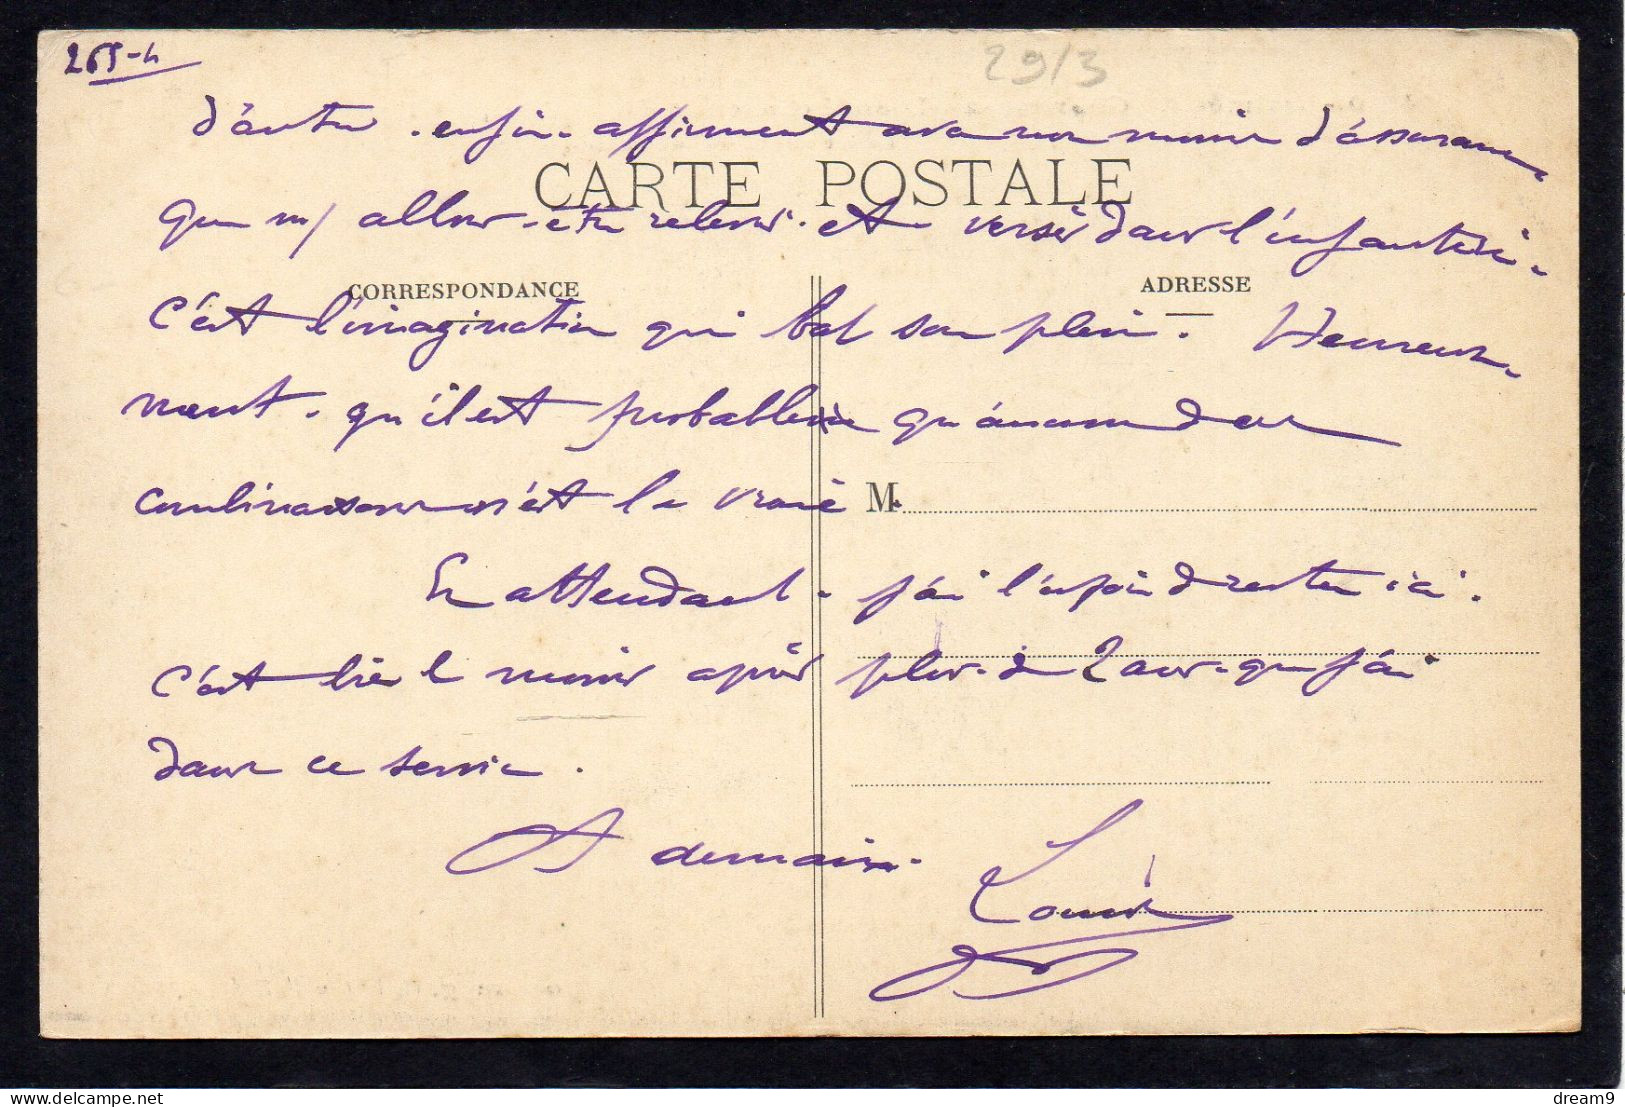 265-4
29/3
d'autres. enfin. affirment avec non moins d'assurance
CARTE POSTALE
que n/ allons être relevés. et versés dans l'infanterie.
CORRESPONDANCE
ADRESSE
C'est l'imagination qui bat son plein. Heureuse-
ment. qu'il est probable qu'aucune des
combinaisons n'est la vraie
M.
En attendant. j'ai l'espoir d rester ici.
C'est bien le moins après plus de 2 ans que j'ai
dans ce service.
A demain.
Louis
delcampe.net
dream9